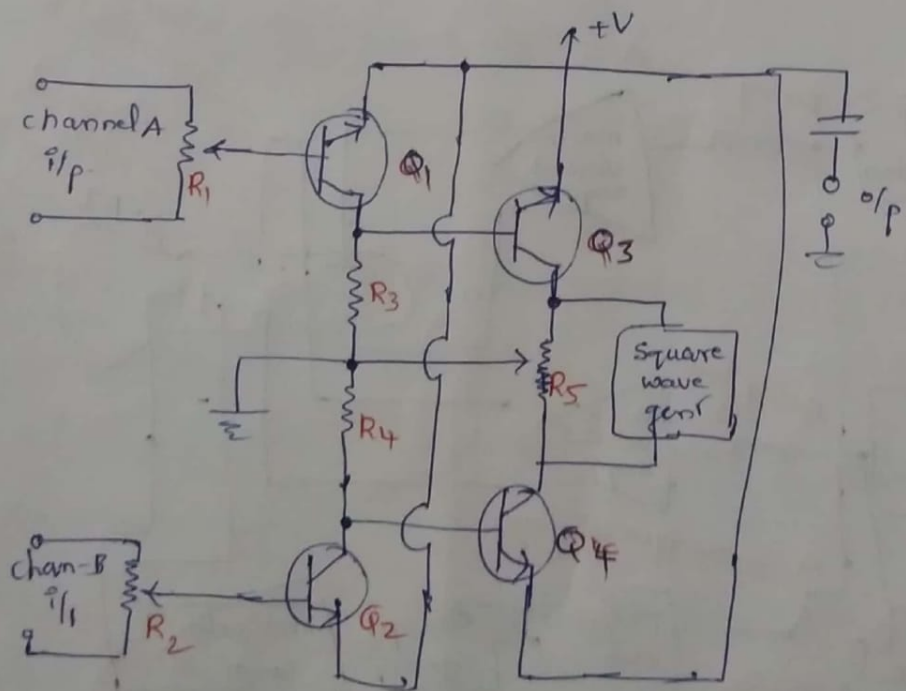 +V
channel A
i/p
R1
Q1
o/p
Q3
R3
Square
wave
genr
R5
R4
Q4
chan-B
i/1
R2
Q2